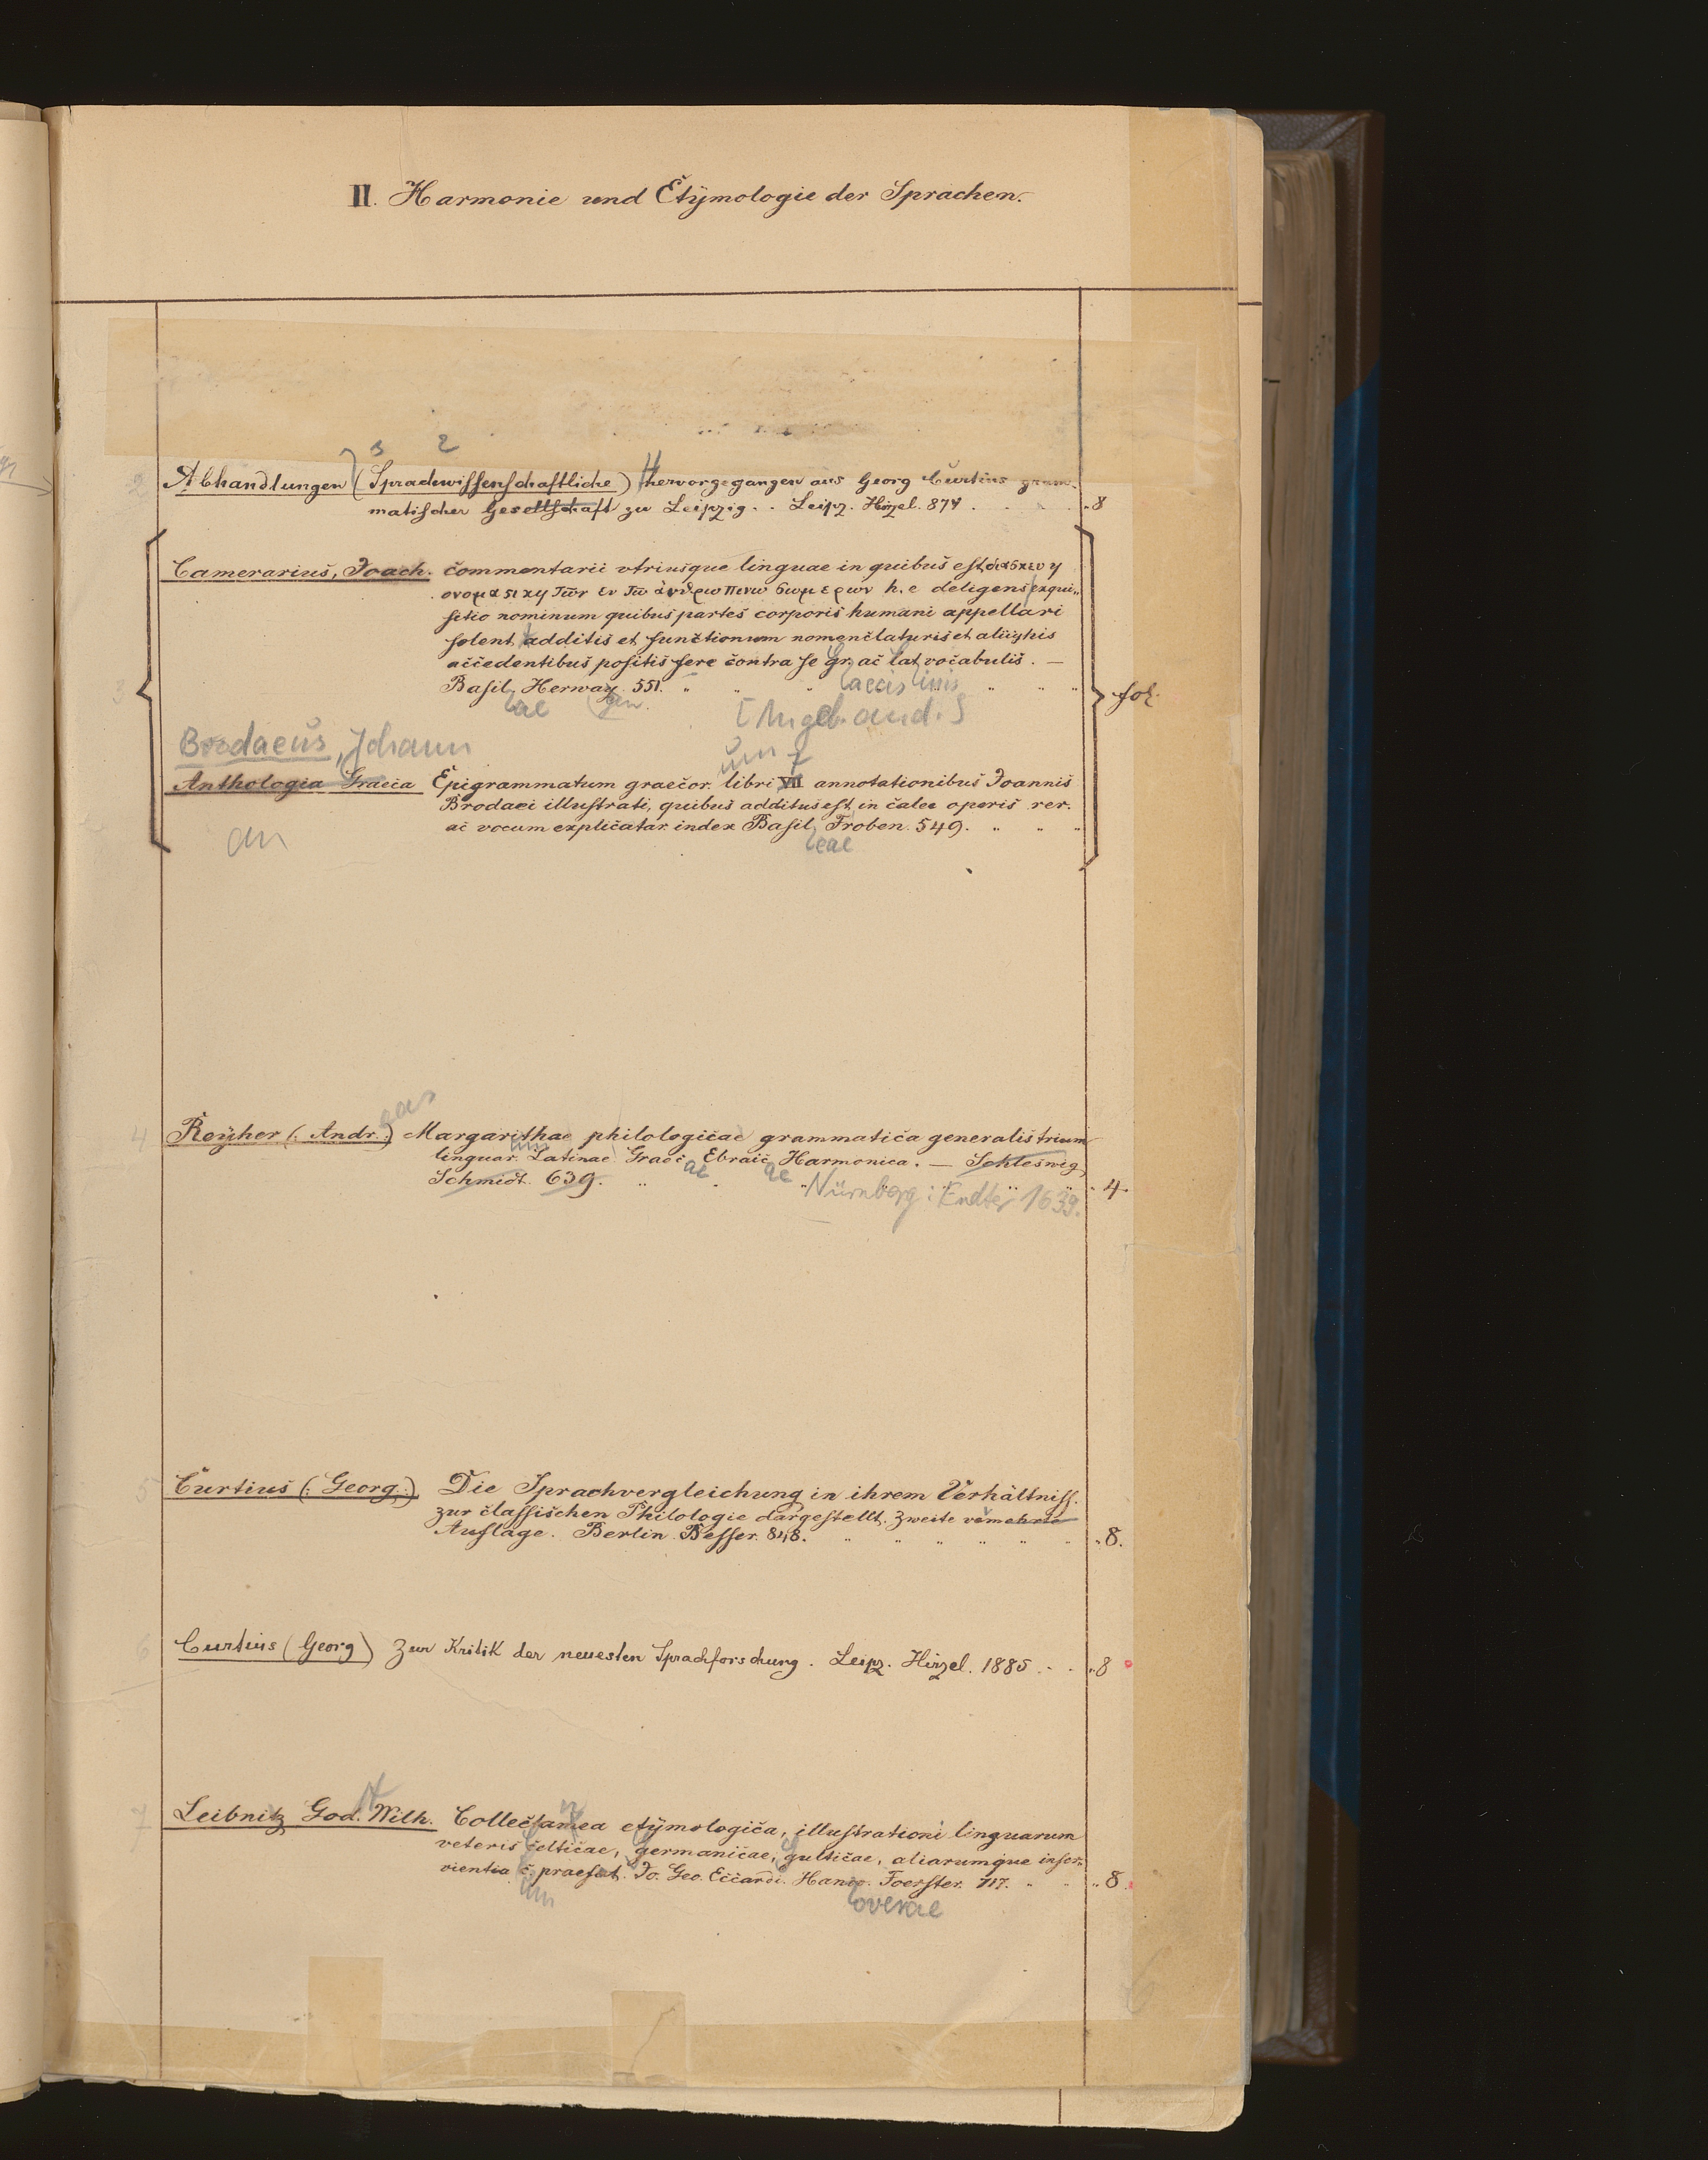 II. Harmonie und Etÿmologie der Sprachen.
3 2
2 Abhandlungen (Sprachwissenschaftliche) hervorgegangen aus Georg Curtius gram-
matischer Gesellschaft zu Leipzig. . Leipz. Hirzel. 874 . . . . 8
Camerarius, Joach. commentarii vtriusque linguae in quibus est διασκευη
ονομασικη των εν τω ανθρωπινω σωμερων h. e deligens exqui-
sitio nominum quibus partes corporis humani appellari
solent additis et functionum nomenclaturis et aliis his
accedentibus positis fere contra se gr. ac lat vocabulis. —
aecis inis
3 Basil. Herwag. 551. fol.
eae gen. [Angeb. and.]
Brodaeus, Johann
um 7
Anthologia Graeca Epigrammatum graecor. libri VII annotationibus Joannis
Brodaei illustrati, quibus additus est in calce operis rer.
ac vocum explicatar. index Basil, Froben. 549.
an eae
eas
4 Reÿher (: Andr.:) Margarithae philologicae grammatica generalis trium
linguar. Latinae Graec Ebraic Harmonica. — Schleswig
um ae ae
Schmidt. 639. 4.
Nürnberg: Endter 1639.
5 Curtius (: Georg.:) Die Sprachvergleichung in ihrem Verhältniss.
zur classischen Philologie dargestellt. Zweite vermehrte
Auflage. Berlin Besser. 848. 8.
6 Curtius (Georg) Zur Kritik der neuesten Sprachforschung. Leipz. Hirzel. 1885 . . 8
7 Leibnitz God. Wilh. Collectanea etÿmologica, illustrationi linguarum
veteris celticae, germanicae, gallicae, aliarumque inser-
vientia c. praefat. Jo. Geo. Eccardi. Hanov. Foerster. 717. 8.
um overae